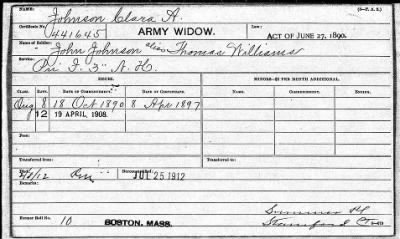 (3—F. A. S.)
Name: Johnson Clara A.
Certificate No. 441645 ARMY WIDOW. ACT OF JUNE 27, 1890.
Name of Soldier: John Johnson alias Thomas Williams
Service: Pri I. 3" N. H.
MINORS—$2 PER MONTH ADDITIONAL.
CLASS. RATE. DATE OF COMMENCEMENT. DATE OF CERTIFICATE. NAMES.
Aug 8 18 Oct 1890 8 Apr 1897
12 19 APRIL, 1908.
Fees:
Transferred from: Transferred to:
Died: Discontinued: JUL 25 1912
Remarks:
Former Roll No. 10 BOSTON, MASS.
Summer St
Stamford Ct